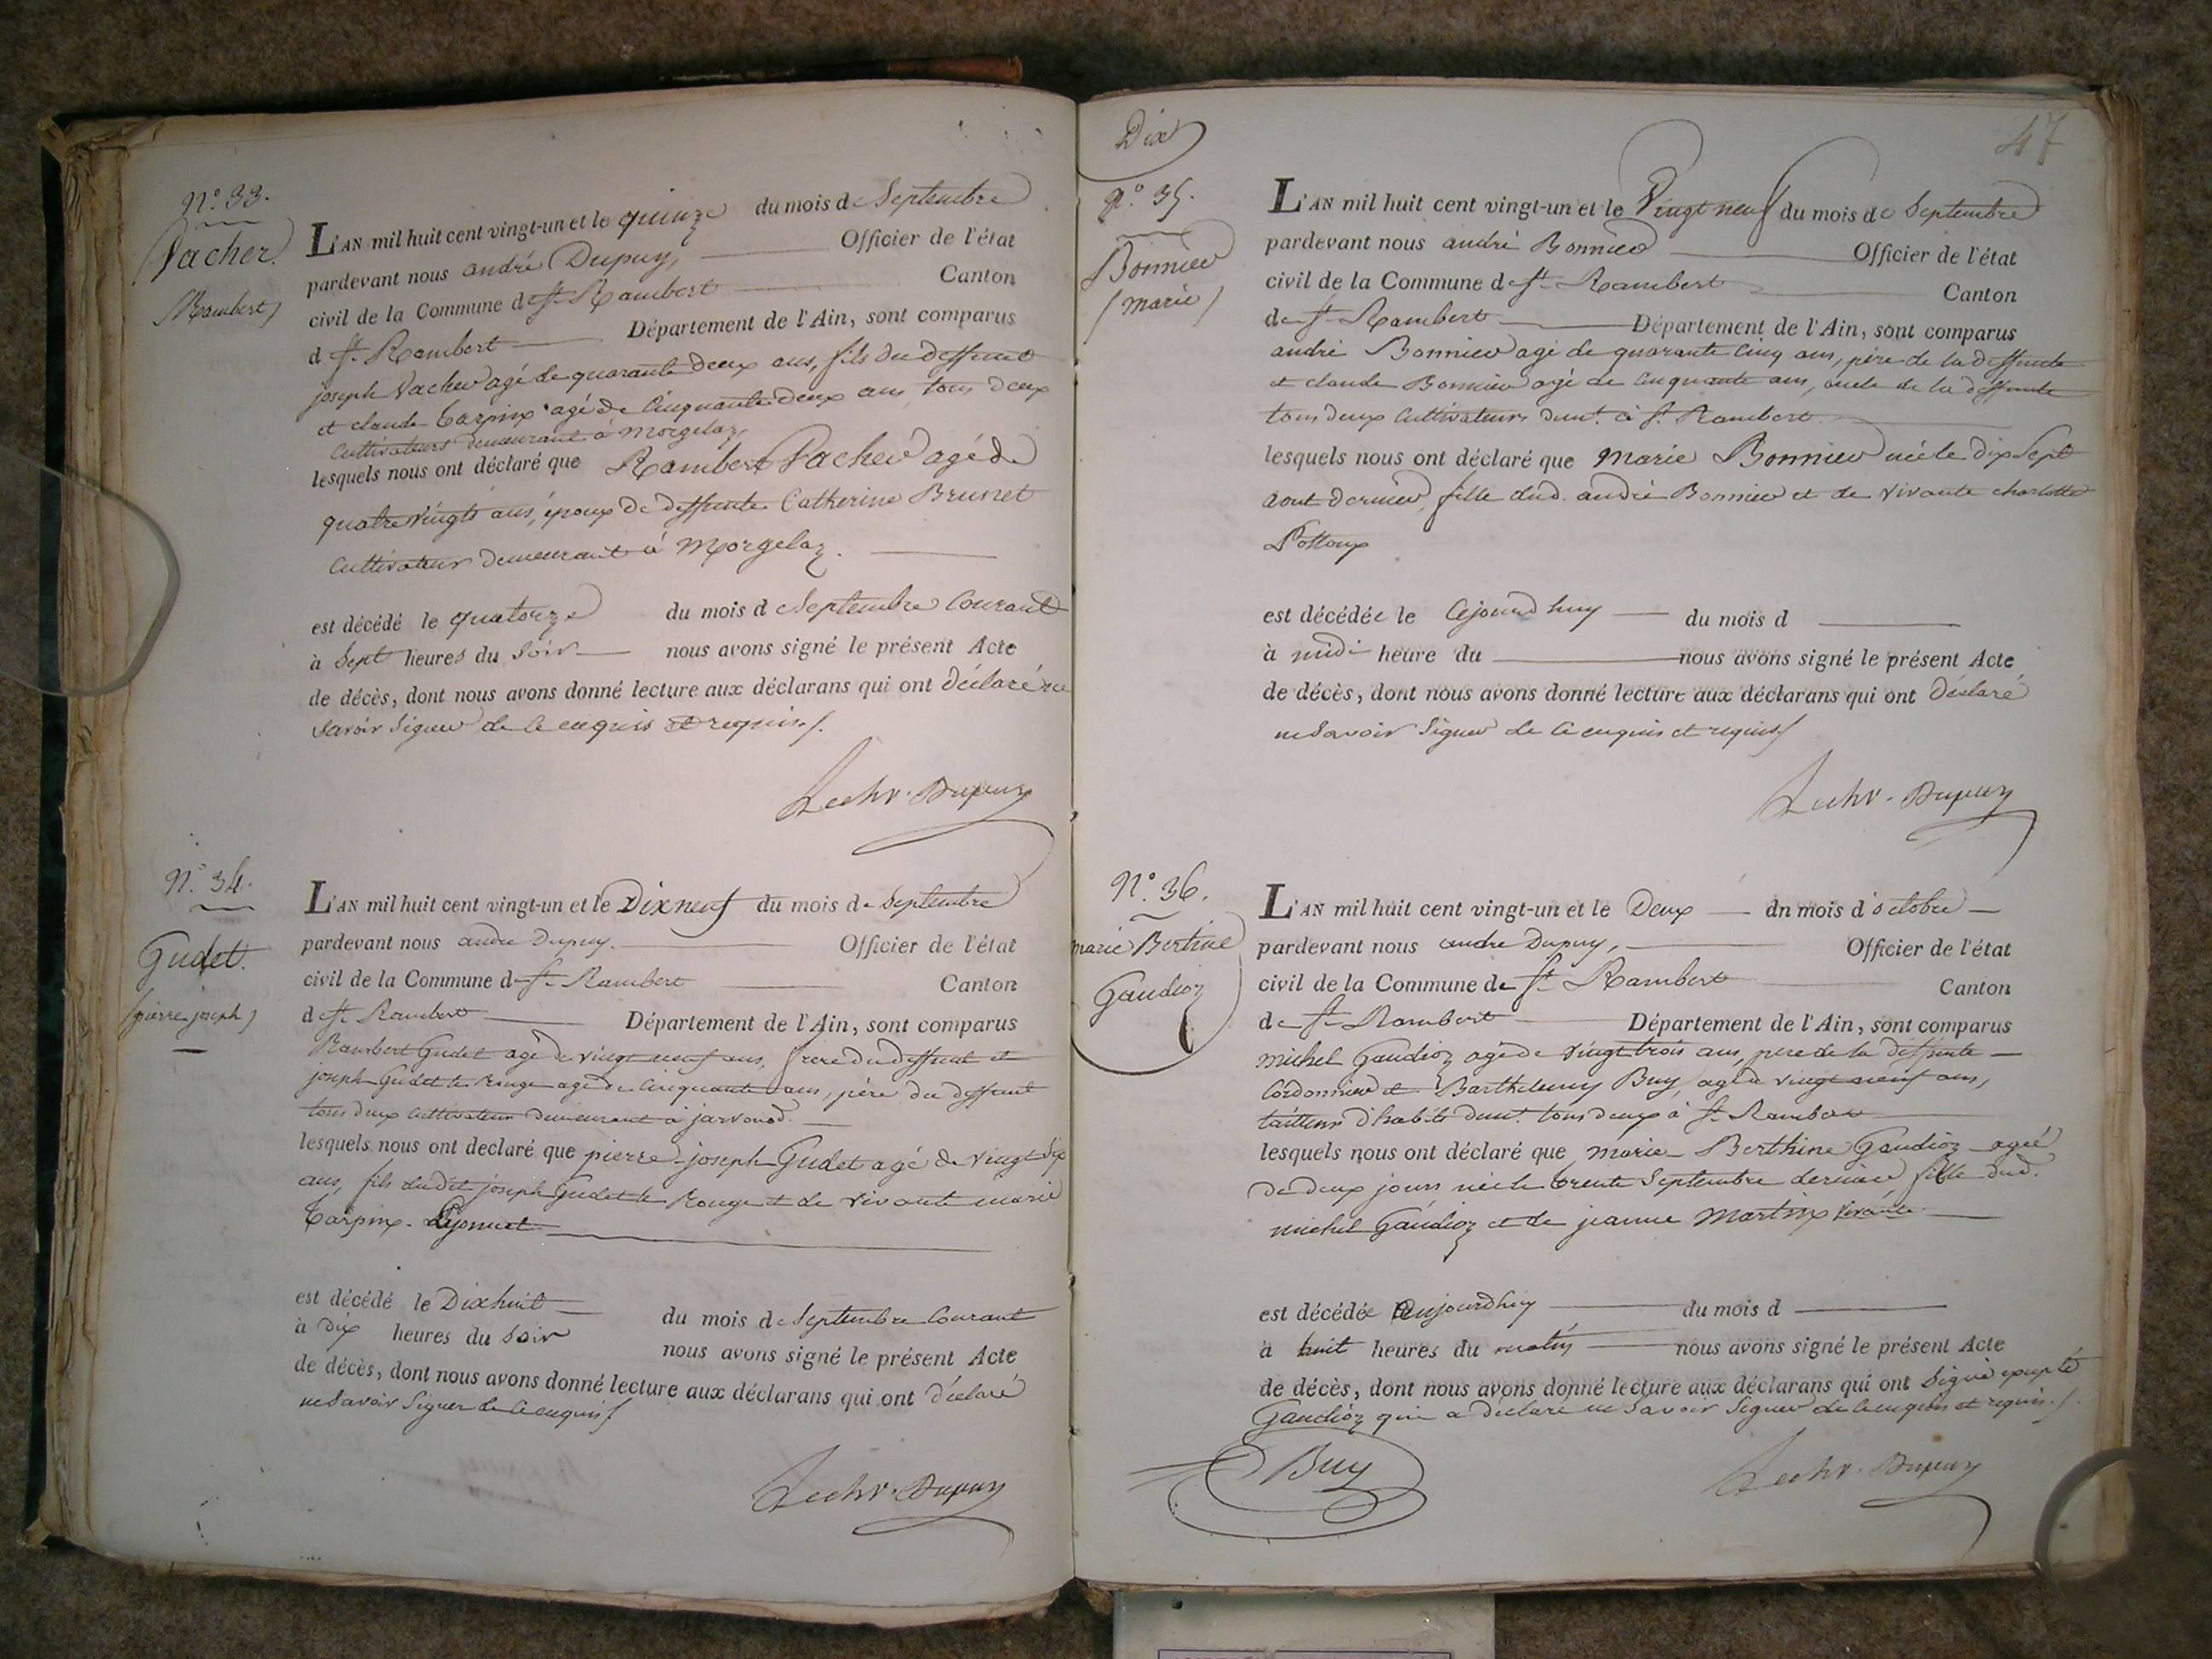 N.° 33.
Vacher.
(Rambert)
L'AN mil huit cent vingt-un et le quinze du mois de Septembre
pardevant nous andré Dupuy, Officier de l'état
civil de la Commune de St. Rambert Canton
d St. Rambert Département de l'Ain, sont comparus
joseph Vacher agé de quarante deux ans, fils du deffunt
et claude Tarpinx agé de Cinquante deux ans tous deux
Cultivateurs demeurant à Morgelaz,
lesquels nous ont déclaré que Rambert Vacher agé de
quatre vingts ans, époux de deffunte Catherine Brunet
Cultivateur demeurant à Morgelaz.
est décédé le quatorze du mois d Septembre Courant
à Sept heures du Soir nous avons signé le présent Acte
de décès, dont nous avons donné lecture aux déclarans qui ont déclaré ne
Savoir Signer de ce enquis et requis.
Dupuy
N.° 34.
Gudet.
(pierre joseph)
L'AN mil huit cent vingt-un et le Dix neuf du mois de Septembre
pardevant nous andre Dupuy. Officier de l'état
civil de la Commune de St. Rambert Canton
de St. Rambert Département de l'Ain, sont comparus
Rambert Gudet agé de vingt neuf ans, frere du deffunt et
joseph Gudet le Rouge agé de Cinquante ans, père du deffunt
tous deux Cultivateurs demeurant à jarvonod.
lesquels nous ont declaré que pierre joseph Gudet agé de vingt Six
ans, fils dudit joseph Gudet le Rouge et de vivante marie
Tarpinx
est décédé le Dixhuit du mois de Septembre Courant
à dix heures du Soir nous avons signé le présent Acte
de décès, dont nous avons donné lecture aux déclarans qui ont déclaré
ne Savoir Signer de ce enquis
Dupuy
Dix
47
N.° 35.
Bonnier
(marie)
L'AN mil huit cent vingt-un et le Vingt neuf du mois de Septembre
pardevant nous andré Bonnier Officier de l'état
civil de la Commune d St. Rambert Canton
de St. Rambert Département de l'Ain, sont comparus
andré Bonnier agé de quarante Cinq ans, père de la deffunte
et claude Bonnier agé de Cinquante ans, oncle de la deffunte
tous deux Cultivateurs demt. à St. Rambert
lesquels nous ont déclaré que Marie Bonnier née le dix Sept
aout dernier, fille dud. andré Bonnier et de vivante charlotte
est décédée le Cejourd'huy du mois d
à midi heure du nous avons signé le présent Acte
de décès, dont nous avons donné lecture aux déclarans qui ont déclaré
ne Savoir Signer de ce enquis et requis
Dupuy
N.° 36.
marie Bertine
Gaudioz
L'AN mil huit cent vingt-un et le Deux dn mois d'octobre
pardevant nous andre Dupuy, Officier de l'état
civil de la Commune de St. Rambert Canton
de St. Rambert Département de l'Ain, sont comparus
michel Gaudioz agé de vingt trois ans, pere de la deffunte
Cordonnier et Barthelemy Buy, agé de vingt neuf ans,
tailleur d'habits demt. tous deux à St. Rambert
lesquels nous ont déclaré que marie Berthine Gaudioz agée
de deux jours née le trente Septembre dernier fille dud.
michel Gaudioz et de jeanne Martinx vivante
est décédée aujourdhuy du mois d
à huit heures du matin nous avons signé le présent Acte
de décès, dont nous avons donné lecture aux déclarans qui ont Signé excepté
Gaudioz qui a déclaré ne Savoir Signer de ce enquis et requis.
Buy
Dupuy